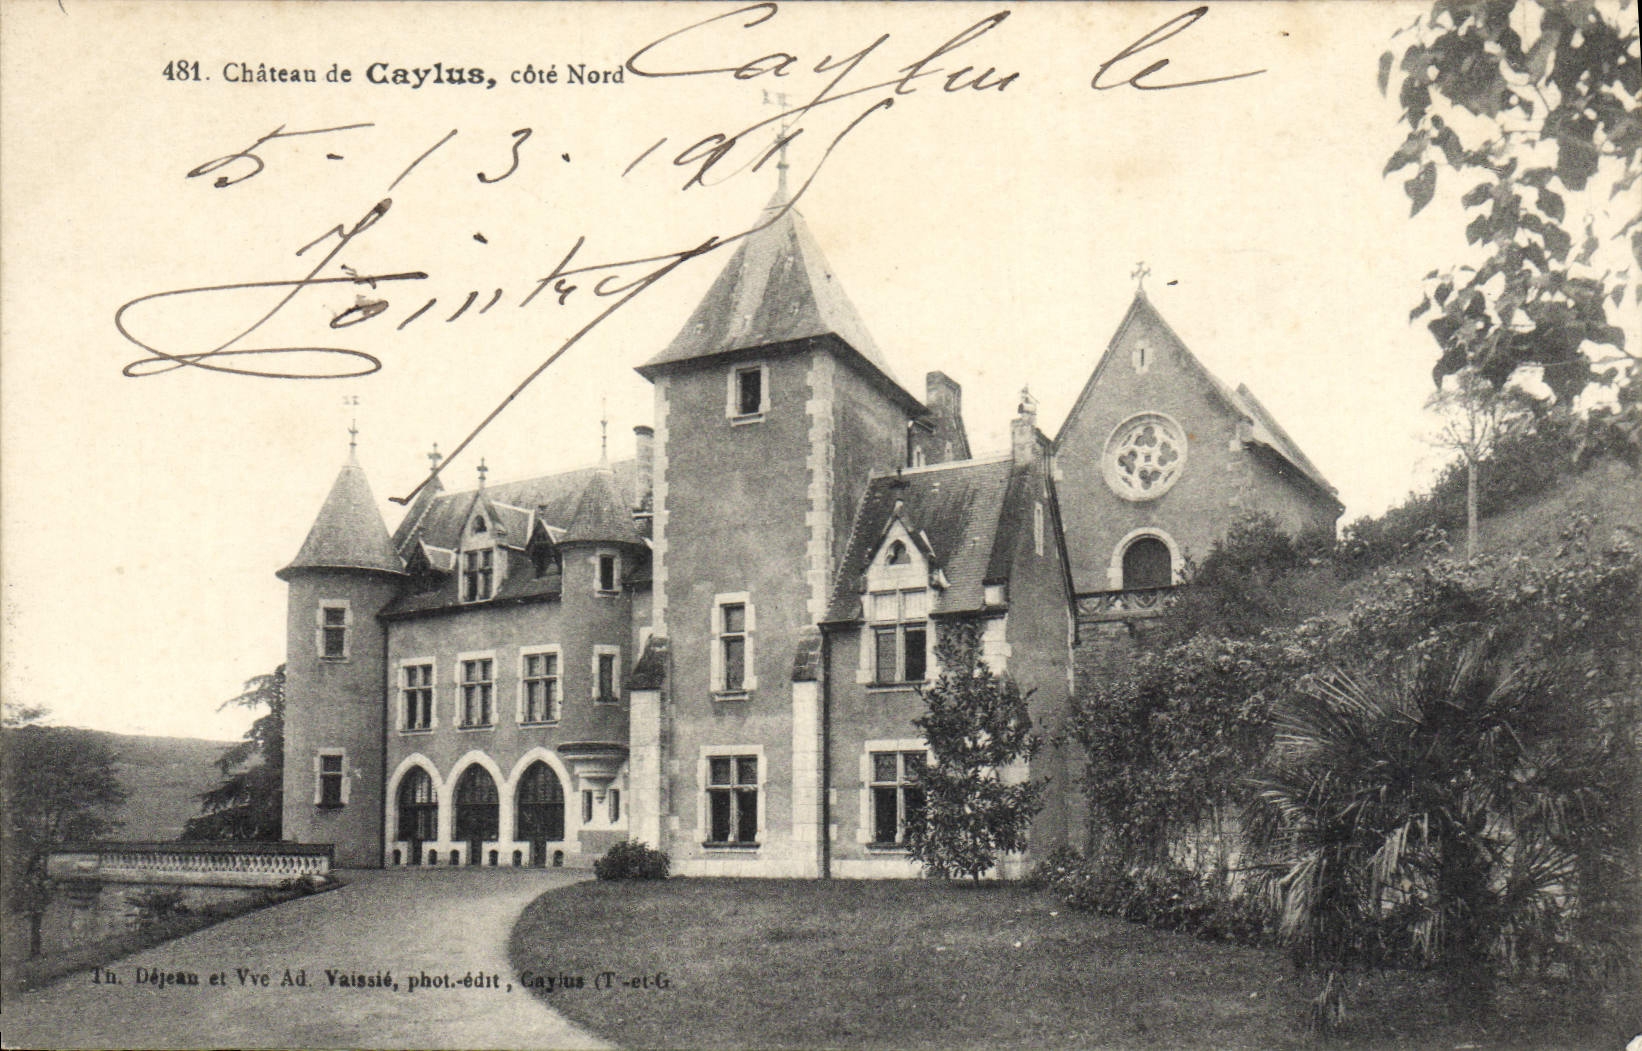 481. Château de Caylus, côté Nord
Caylus le
5-13.1915
Th. Déjean et Vve Ad. Vaissié, phot.-édit, Caylus (T-et-G